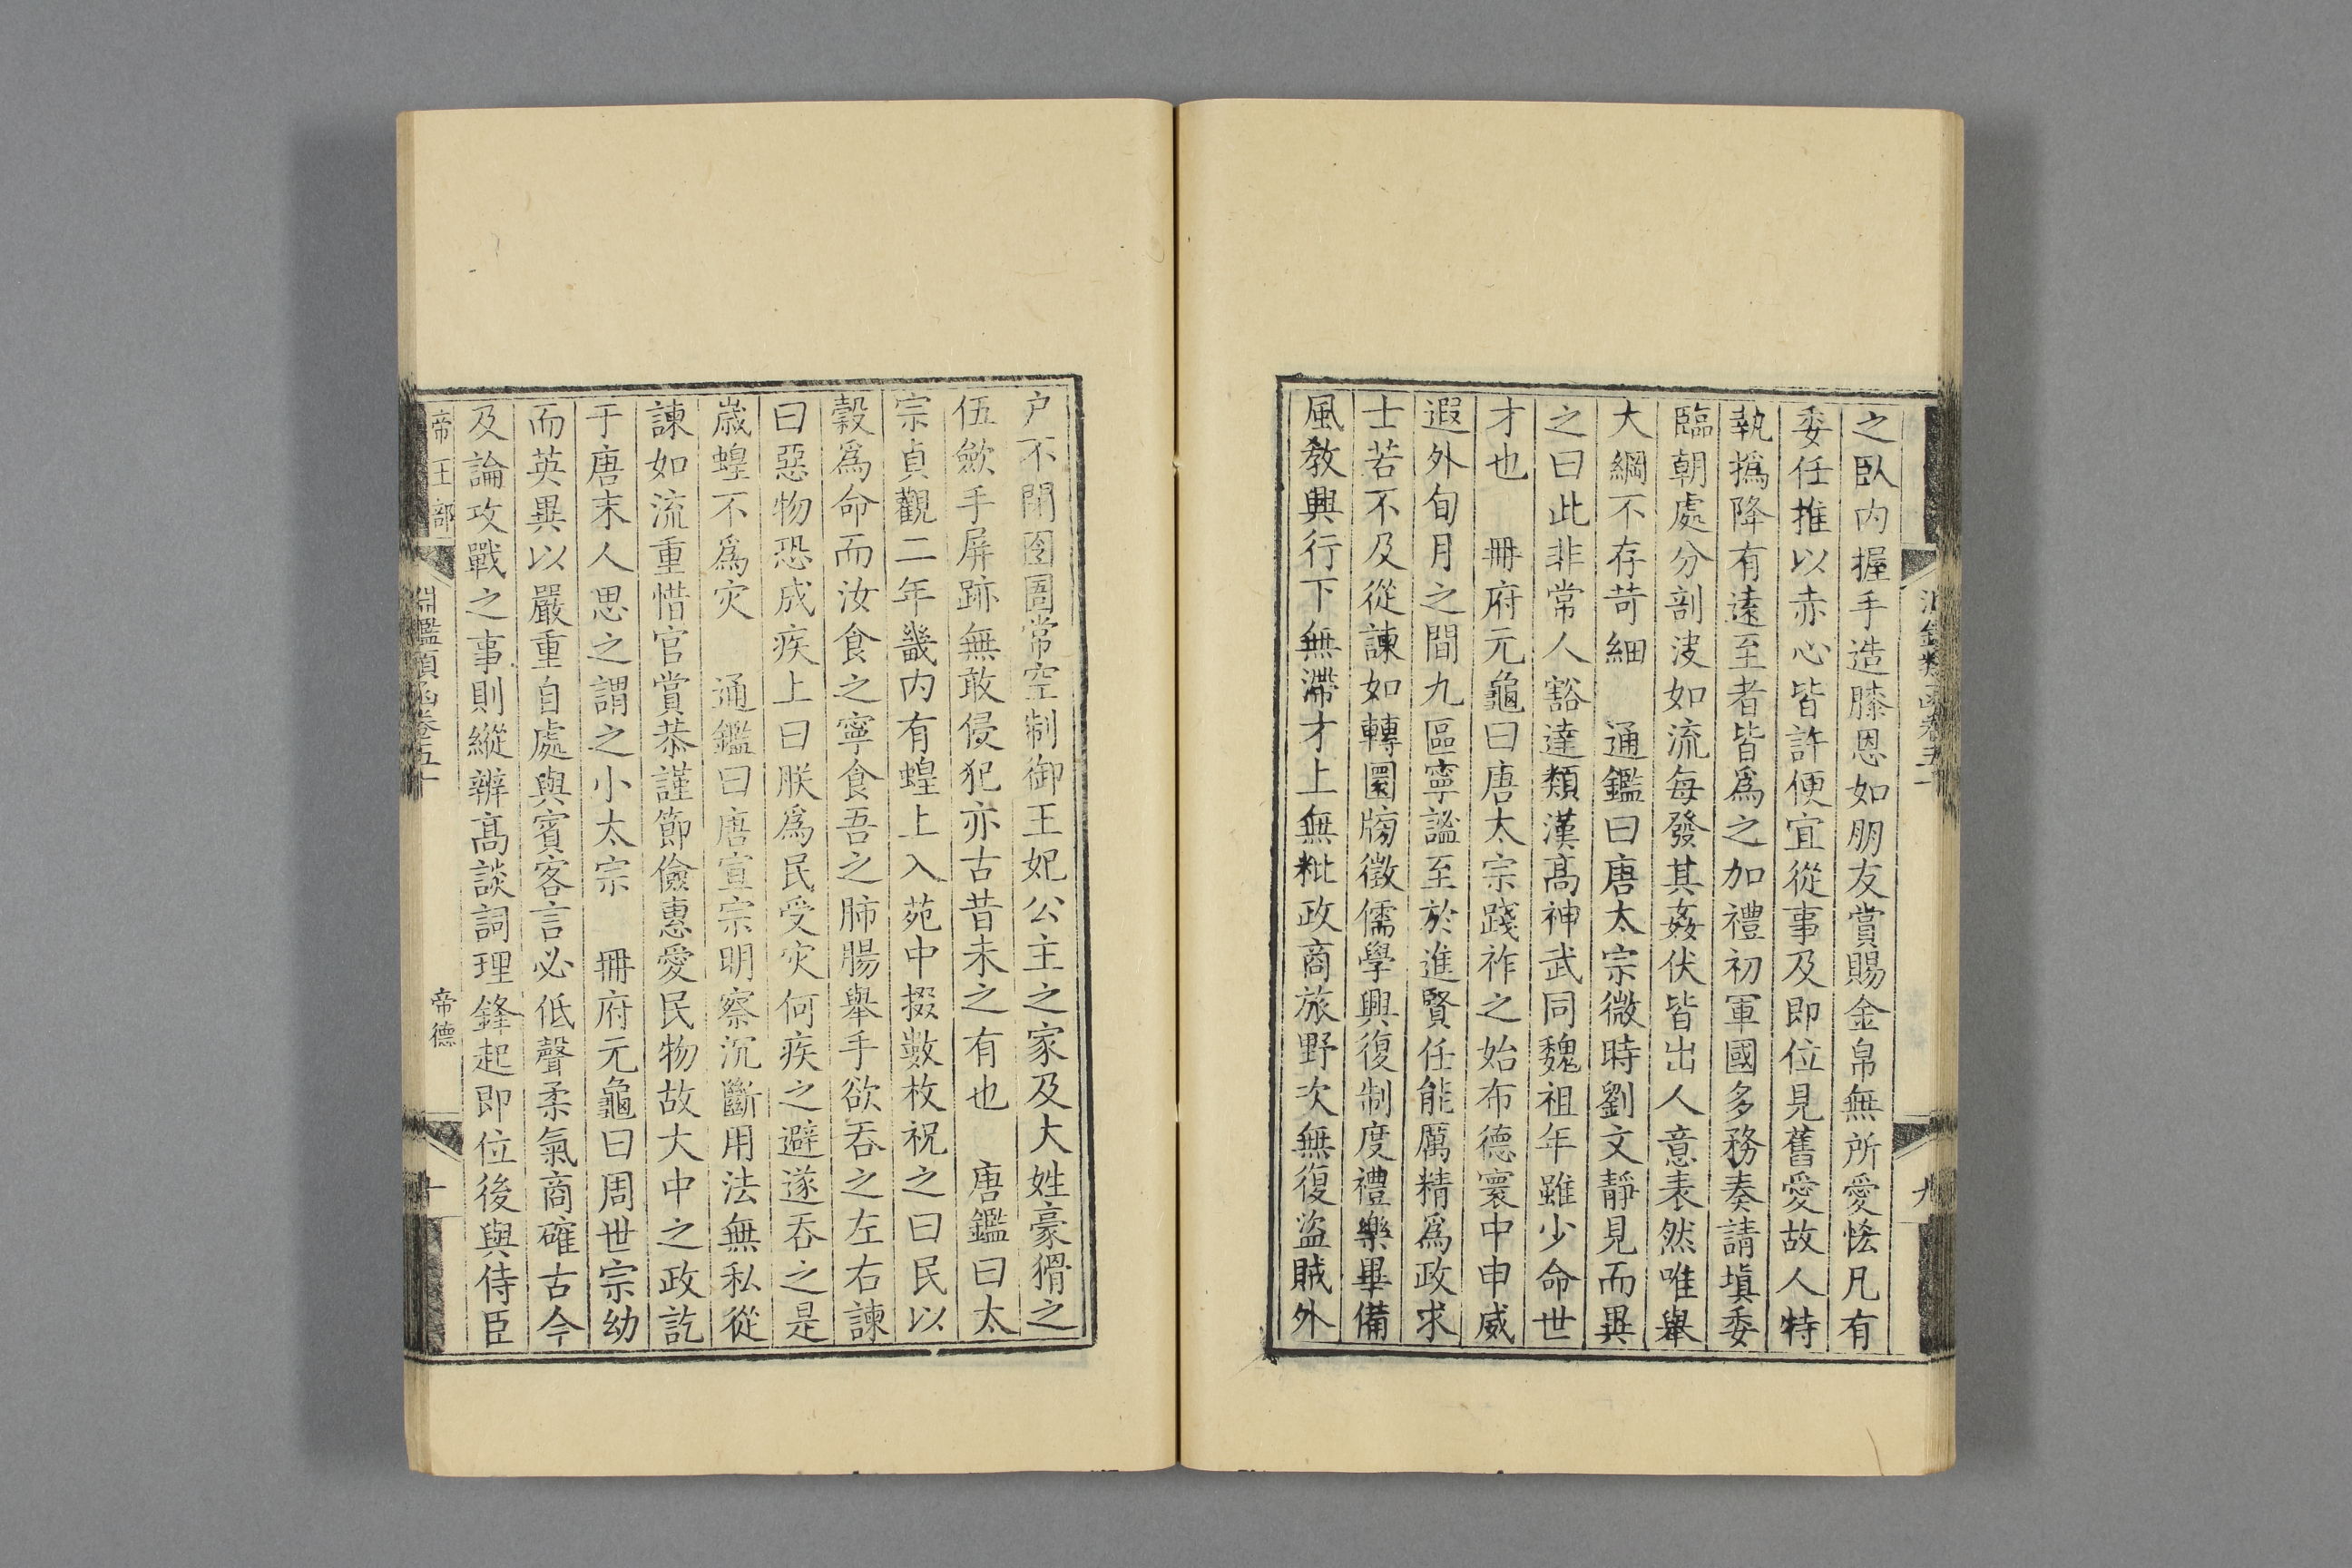 之臥内握手造膝恩如朋友賞賜金帛無所愛恡凡有
委任推以赤心皆許便宜從事及即位見舊愛故人特
執撝降有遠至者皆爲之加禮初軍國多務奏請塡委
臨朝處分剖决如流每發其姦伏皆出人意表然唯舉
大綱不存苛細　通鑑曰唐太宗微時劉文靜見而異
之曰此非常人豁達類漢高神武同魏祖年雖少命世
才也　冊府元龜曰唐太宗踐祚之始布德寰中申威
遐外旬月之間九區寧謐至於進賢任能厲精爲政求
士若不及從諫如轉圜牓徵儒學興復制度禮樂畢備
風敎興行下無滯才上無粃政商旅野次無復盜賊外
户不閉囹圄常空制御王妃公主之家及大姓豪猾之
伍歛手屏跡無敢侵犯亦古昔未之有也　唐鑑曰太
宗貞觀二年畿内有蝗上入苑中掇數枚祝之曰民以
穀爲命而汝食之寧食吾之肺腸舉手欲吞之左右諫
曰惡物恐成疾上曰朕爲民受灾何疾之避遂吞之是
歲蝗不爲灾　通鑑曰唐宣宗明察沉斷用法無私從
諫如流重惜官賞恭謹節儉惠愛民物故大中之政訖
于唐末人思之謂之小太宗　冊府元龜曰周世宗幼
而英異以嚴重自處與賓客言必低聲柔氣商確古今
及論攻戰之事則縱辨高談詞理鋒起即位後與侍臣
帝王部
淵鑑類函卷五十
帝德
十